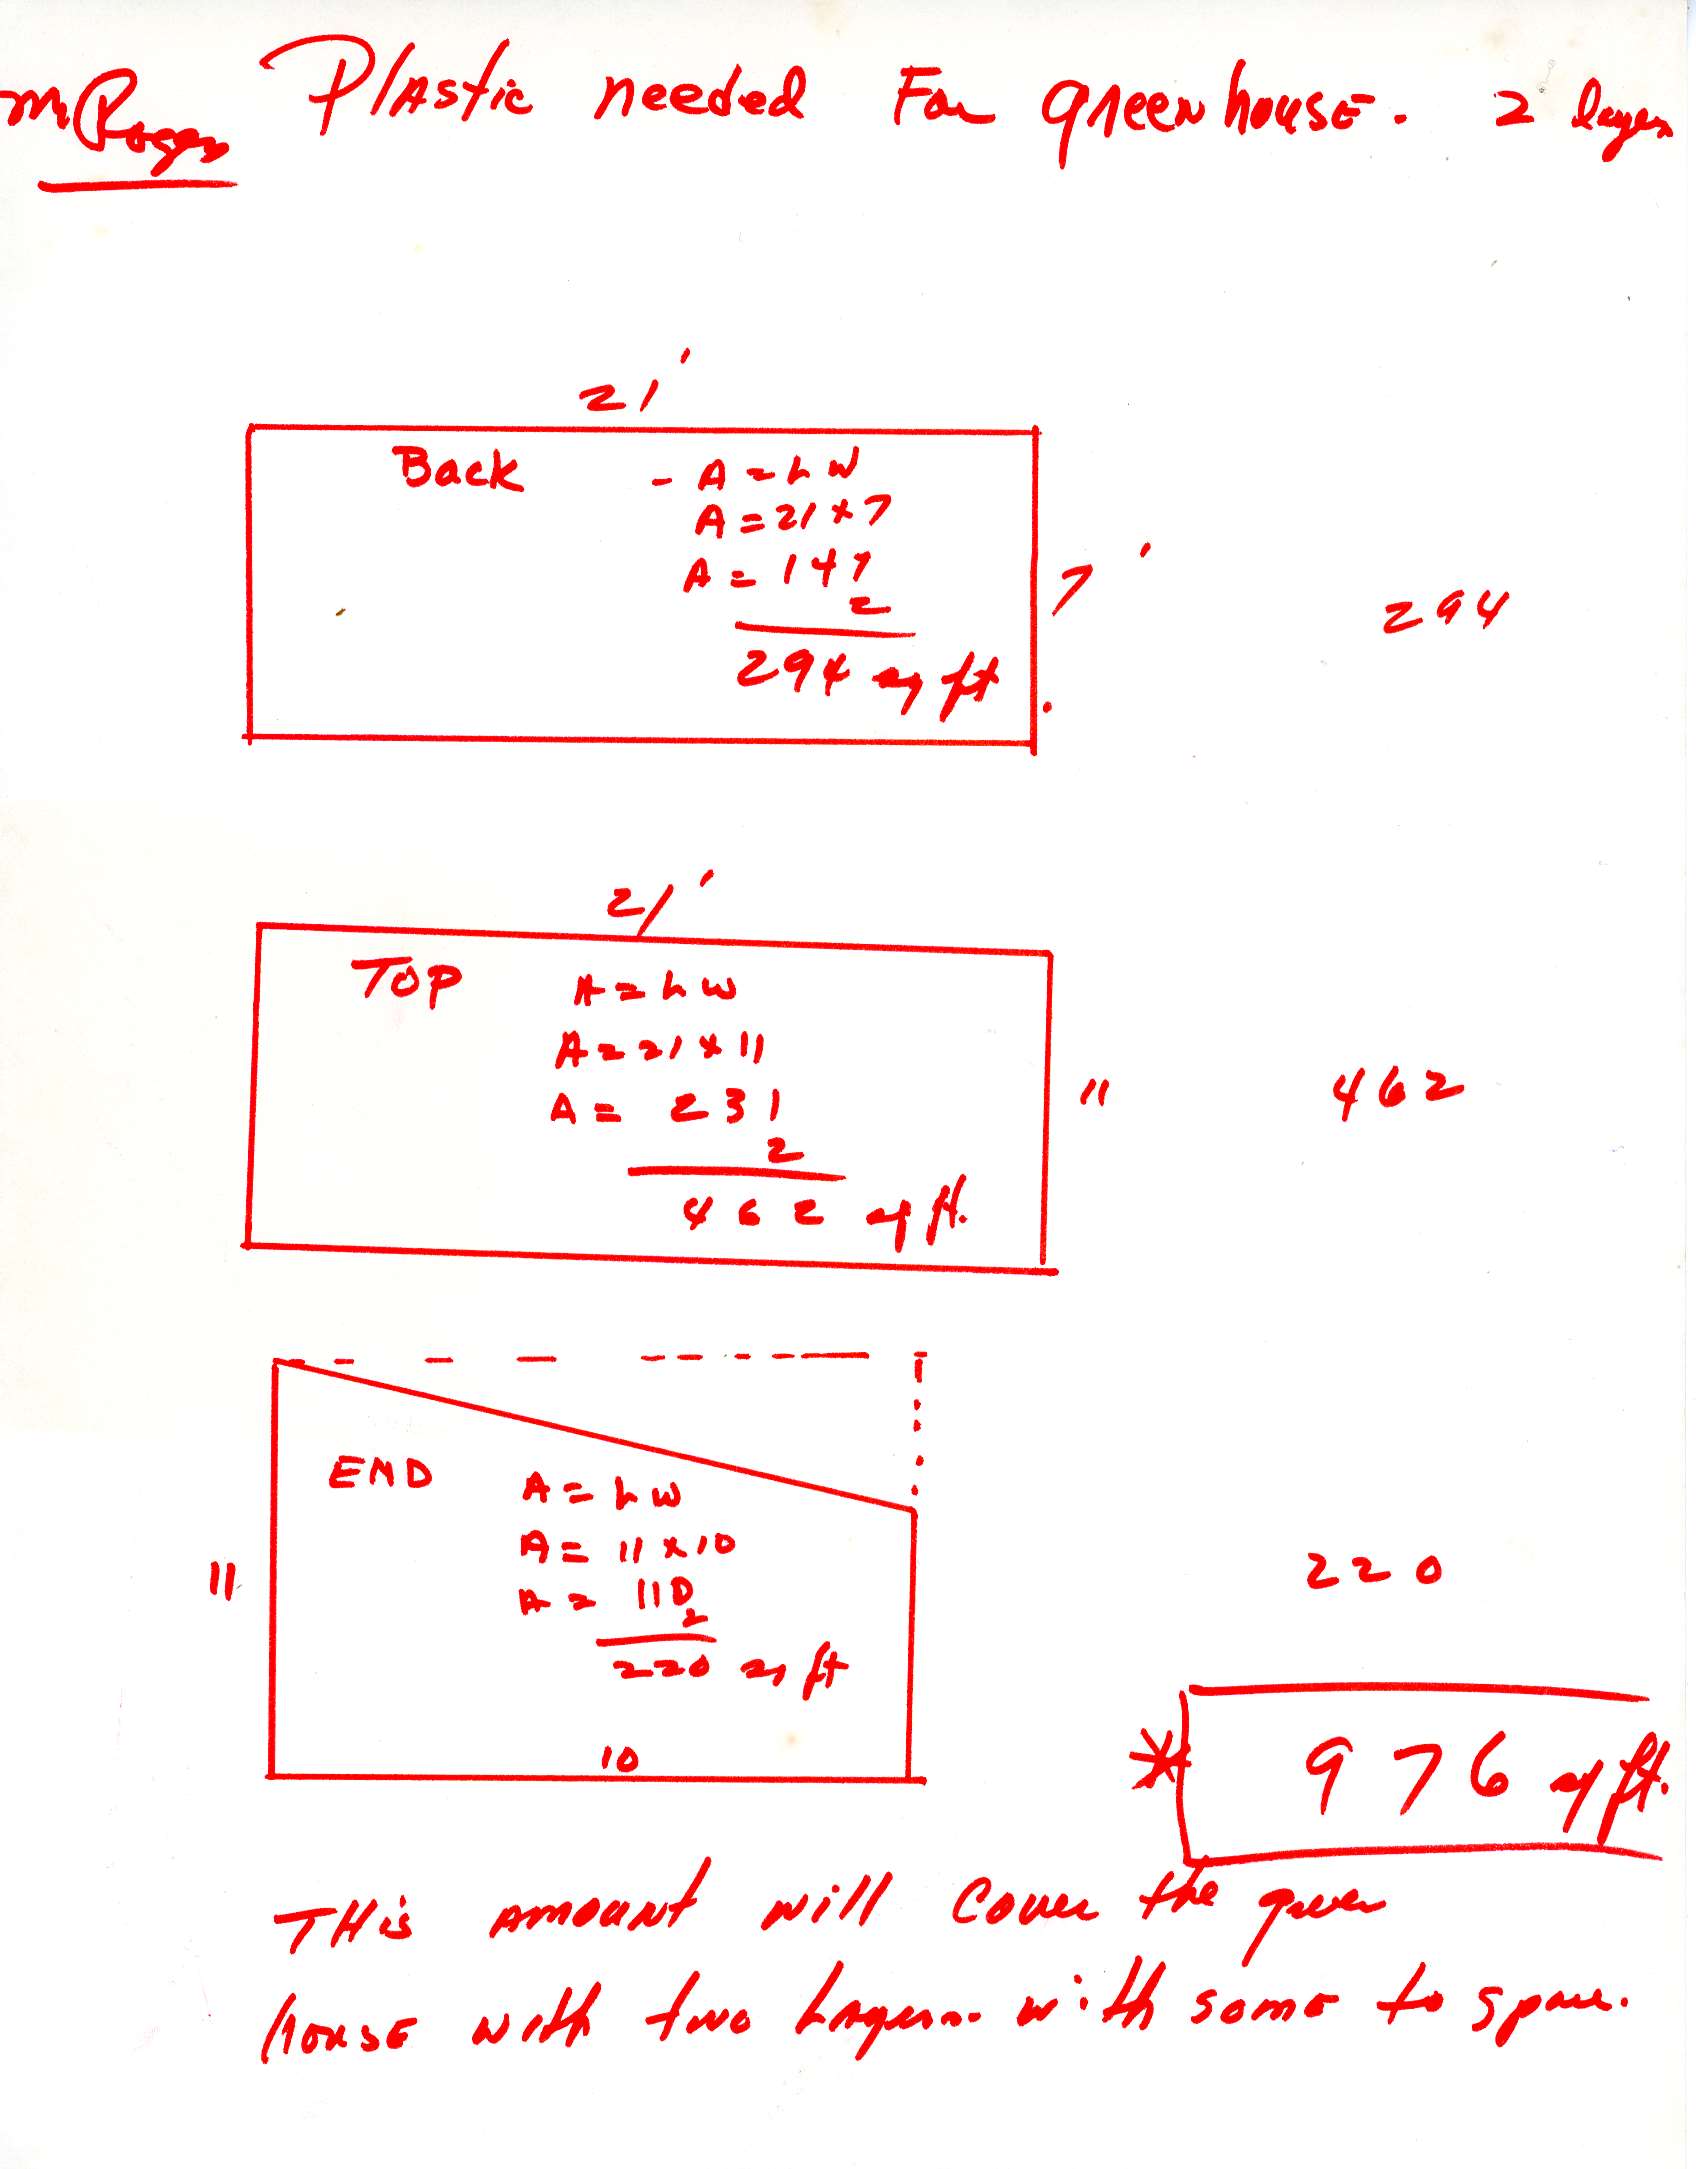 Mr Rogers
Plastic needed For greenhouse. 2 layers
21'
Back - A = L W
A = 21 x 7
A = 147
2
294 sq ft.
7'
294
21'
TOP A = L W
A = 21 x 11
A = 231
2
462 sq ft.
11
462
END A = L W
A = 11 x 10
A = 110
2
220 sq ft
11
10
220
* 976 sq ft.
THis amount will cover the green
house with two Layers. with some to spare.